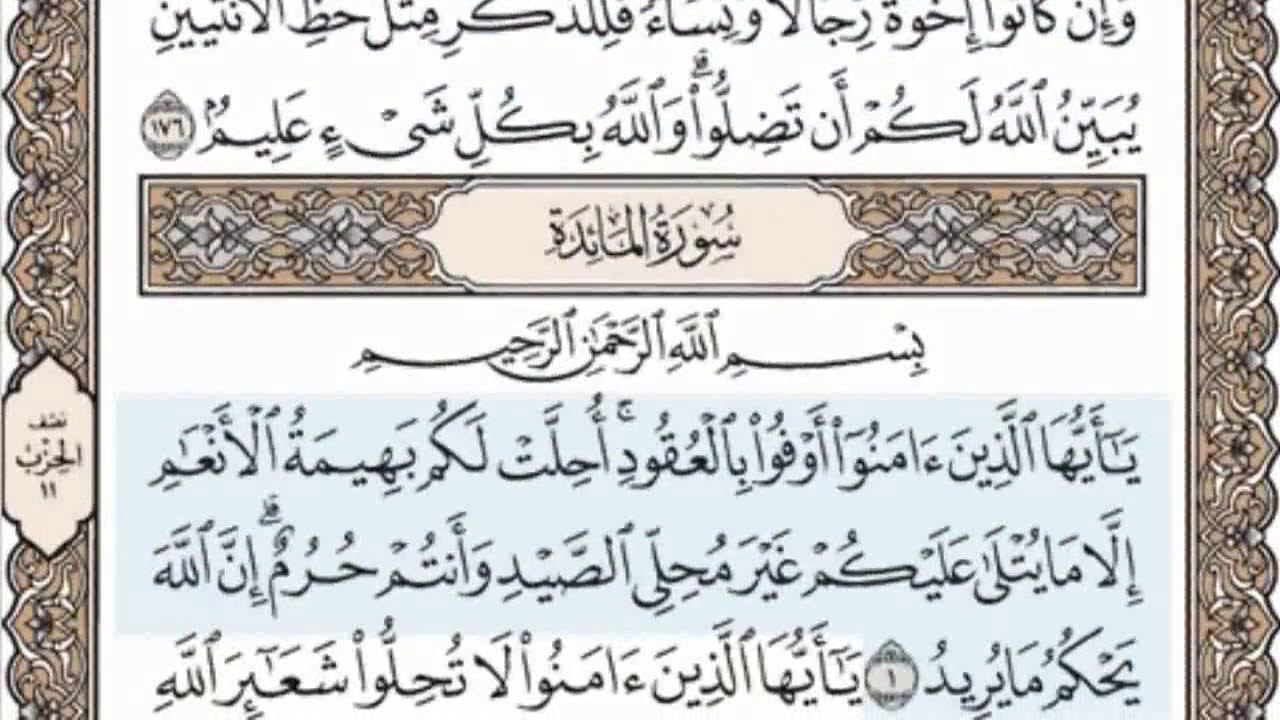 وَإِن كَانُوٓا۟ إِخْوَةً رِّجَالًا وَنِسَآءً فَلِلذَّكَرِ مِثْلُ حَظِّ ٱلْأُنثَيَيْنِ
يُبَيِّنُ ٱللَّهُ لَكُمْ أَن تَضِلُّوا۟ ۗ وَٱللَّهُ بِكُلِّ شَىْءٍ عَلِيمٌۢ ١٧٦
سُورَةُ المَائِدَةِ
بِسْمِ ٱللَّهِ ٱلرَّحْمَٰنِ ٱلرَّحِيمِ
يَٰٓأَيُّهَا ٱلَّذِينَ ءَامَنُوٓا۟ أَوْفُوا۟ بِٱلْعُقُودِ ۚ أُحِلَّتْ لَكُم بَهِيمَةُ ٱلْأَنْعَٰمِ
إِلَّا مَا يُتْلَىٰ عَلَيْكُمْ غَيْرَ مُحِلِّى ٱلصَّيْدِ وَأَنتُمْ حُرُمٌ ۗ إِنَّ ٱللَّهَ
يَحْكُمُ مَا يُرِيدُ ١ يَٰٓأَيُّهَا ٱلَّذِينَ ءَامَنُوا۟ لَا تُحِلُّوا۟ شَعَٰٓئِرَ ٱللَّهِ
نصف
الحزب
١١